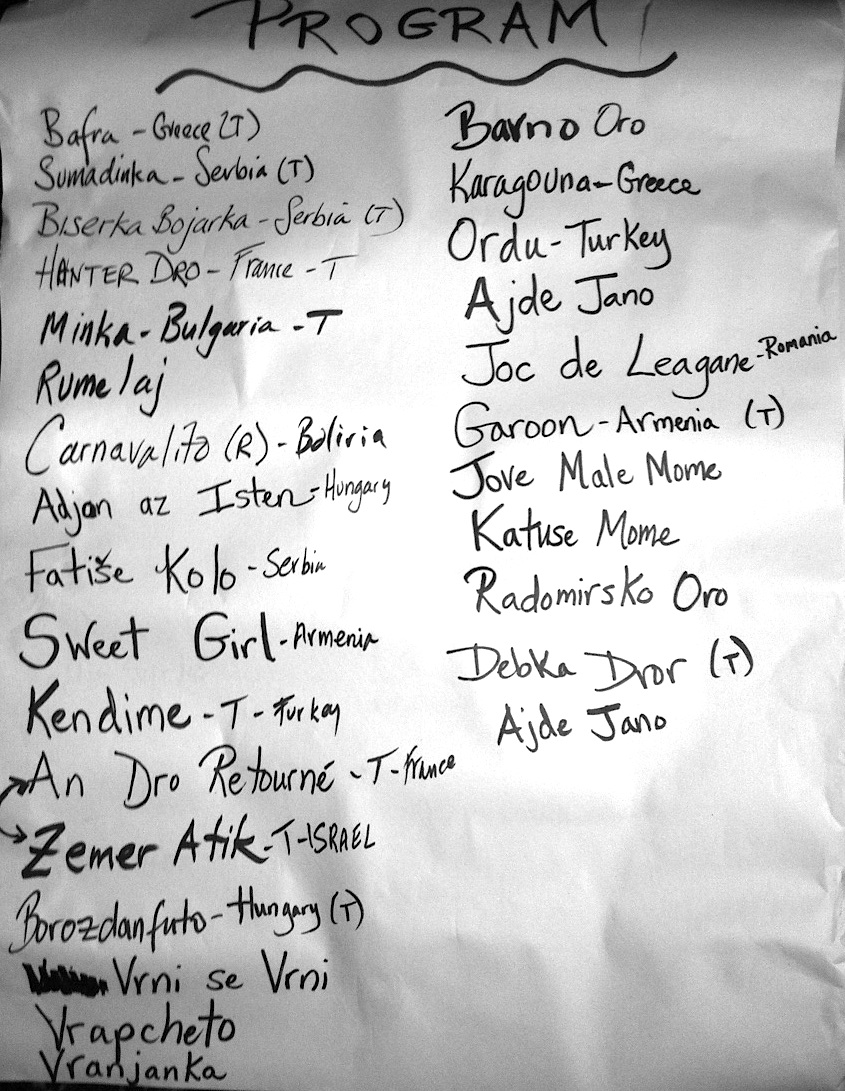 PROGRAM
Bafra - Greece (T)
Sumadinka - Serbia (T)
Biserka Bojarka - Serbia (T)
HANTER DRO - France - T
Minka - Bulgaria - T
Rumelaj
Carnavalito (R) - Bolivia
Adjon az Isten - Hungary
Fatiše Kolo - Serbia
Sweet Girl - Armenia
Kendime - T - Turkey
An Dro Retourné - T - France
Zemer Atik - T - ISRAEL
Borozdanfuto - Hungary (T)
Vrni se Vrni
Vrapcheto
Vranjanka
Barno Oro
Karagouna - Greece
Ordu - Turkey
Ajde Jano
Joc de Leagane - Romania
Garoon - Armenia (T)
Jove Male Mome
Katuse Mome
Radomirsko Oro
Debka Dror (T)
Ajde Jano